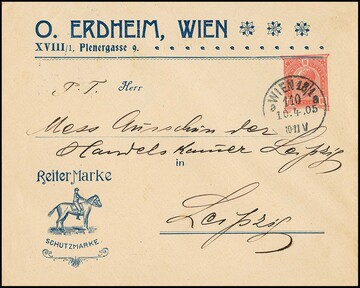 O. ERDHEIM, WIEN
XVIII/1, Plenergasse 9.
WIEN 18/1
a 110 a
10.4.05
10-11 V
P. T. Herr
Mess Ausschuss der
Handelskammer Leipzig
in
Leipzig
Reiter Marke
SCHUTZMARKE.